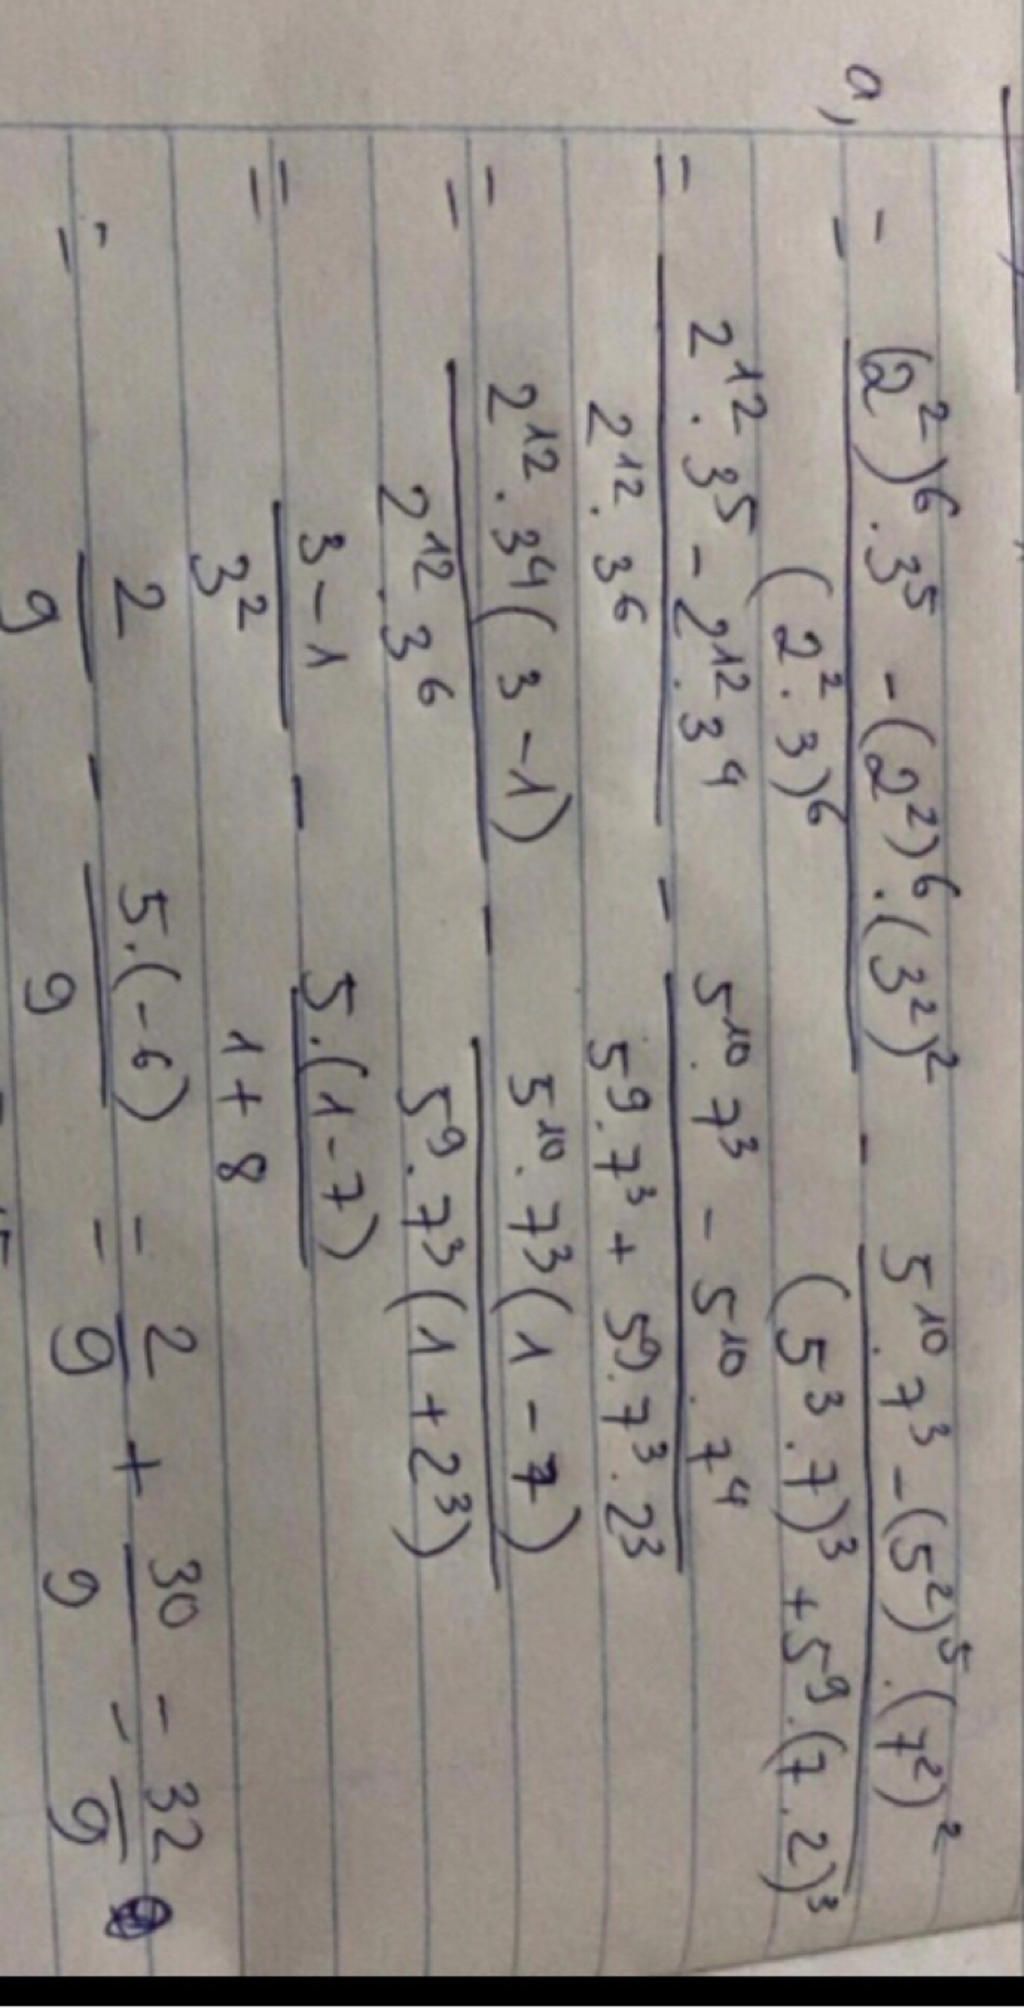 a, = \frac{(2^2)^6 . 3^5 - (2^2)^6 . (3^2)^2}{(2^2 . 3)^6} - \frac{5^{10} . 7^3 - (5^2)^5 . (7^2)^2}{(5^3 . 7)^3 + 5^9 . (7 . 2)^3}
= \frac{2^{12} . 3^5 - 2^{12} . 3^4}{2^{12} . 3^6} - \frac{5^{10} . 7^3 - 5^{10} . 7^4}{5^9 . 7^3 + 5^9 . 7^3 . 2^3}
= \frac{2^{12} . 3^4 (3 - 1)}{2^{12} . 3^6} - \frac{5^{10} . 7^3 (1 - 7)}{5^9 . 7^3 (1 + 2^3)}
= \frac{3 - 1}{3^2} - \frac{5 . (1 - 7)}{1 + 8}
= \frac{2}{9} - \frac{5 . (-6)}{9} = \frac{2}{9} + \frac{30}{9} = \frac{32}{9}